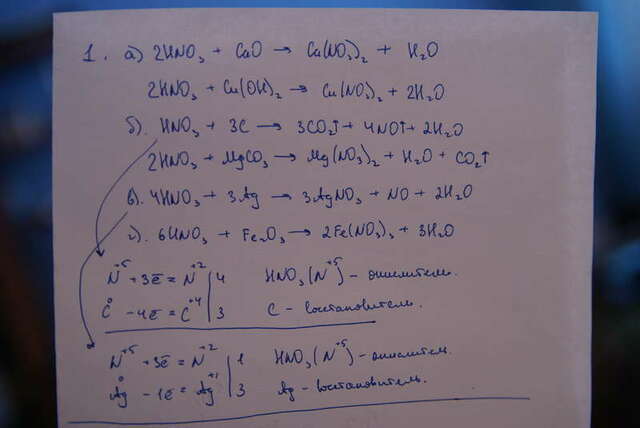 1. а) 2HNO₃ + CuO → Cu(NO₃)₂ + H₂O
2HNO₃ + Cu(OH)₂ → Cu(NO₃)₂ + 2H₂O
б). HNO₃ + 3C → 3CO₂↑ + 4NO↑ + 2H₂O
2HNO₃ + MgCO₃ → Mg(NO₃)₂ + H₂O + CO₂↑
в). 4HNO₃ + 3Ag → 3AgNO₃ + NO + 2H₂O
г). 6HNO₃ + Fe₂O₃ → 2Fe(NO₃)₃ + 3H₂O
N⁺⁵ + 3ē = N⁺² | 4 HNO₃ (N⁺⁵) – окислитель.
C⁰ – 4ē = C⁺⁴ | 3 C – восстановитель.
N⁺⁵ + 3ē = N⁺² | 1 HNO₃ (N⁺⁵) – окислитель.
Ag⁰ – 1ē = Ag⁺¹ | 3 Ag – восстановитель.